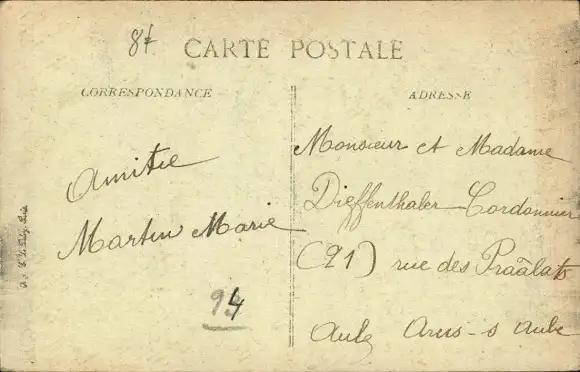 87
CARTE POSTALE
CORRESPONDANCE
ADRESSE
Amitie
Martin Marie
94
Monsieur et Madame
Dieffenthaler Cordonnier
(21) rue des Praâlats
Aube Arcis-s Aube